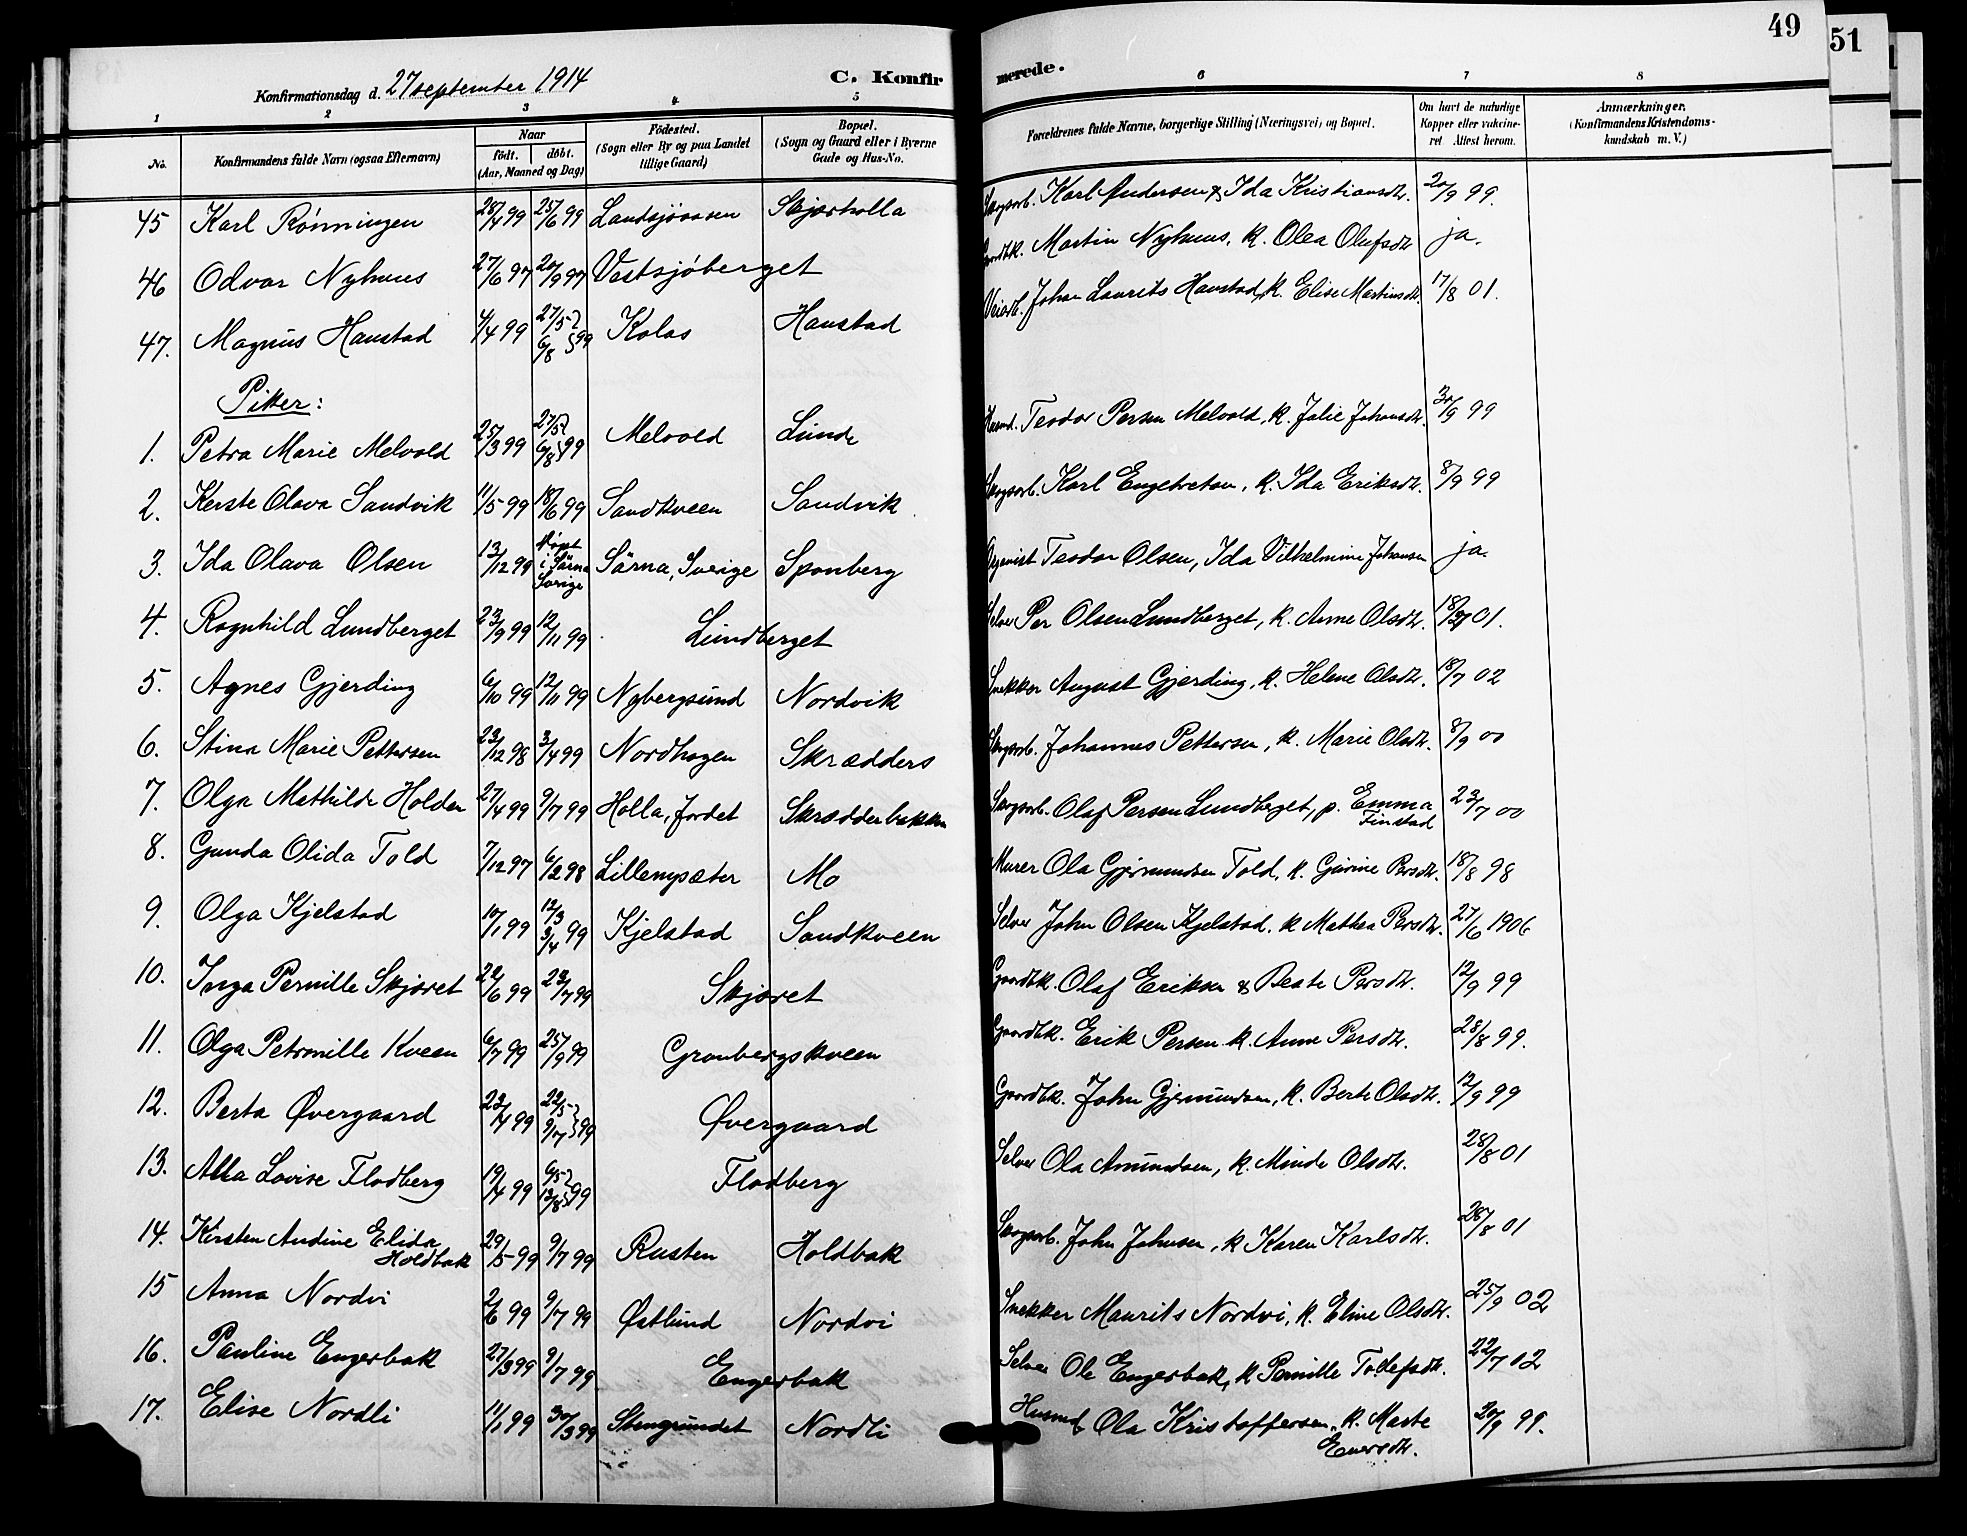 49
51
Konfirmationsdag d. 27 september 1914
C. Konfirmerede.
1 2 3 4 5 6 7 8
No.
Konfirmandens fulde Navn (ogsaa Efternavn)
Naar
født. døbt.
(Aar, Maaned og Dag)
Fødested.
(Sogn eller By og paa Landet
tillige Gaard)
Bopæl.
(Sogn og Gaard eller i Byerne
Gade og Hus-No.
Forældrenes fulde Navne, borgerlige Stilling (Næringsvei) og Bopæl.
Om havt de naturlige
Kopper eller vakcine-
ret Attest herom.
Anmærkninger.
(Konfirmandens Kristendoms-
kundskab m. V.)
45 Karl Rönningen 28/4 99 25/6 99 Landsjöaasen Skjærholla Skogsarb. Karl Andersen & Ida Kristiansdtr. 20/9 99.
46 Odvar Nyhuus 27/6 97 20/9 97 Vestsjøberget Gaardbk. Martin Nyhuus, k. Olea Olufsdtr ja.
47. Magnus Haustad 4/4 99 27/5 6/8 } 99 Kolos Haustad Veiarb. Johan Laurits Haustad, k. Elise Martinsdtr. 17/8 01.
Piker:
1. Petra Marie Melvold 25/3 99 27/5 6/8 } 99 Melvold Lunde Husmd. Teodor Persen Melvold, k. Julie Johansdtr. 30/9 99
2. Kerste Olava Sandvik 11/5 99 18/6 99 Sandkveen Sandvik Skogsarb. Karl Engebretsen, k. Ida Eriksdtr. 8/9 99
3. Ida Olava Olsen 13/12 99 døpt i Särna Sverige Särna, Sverige Sponberg Teodor Olsen, Ida Vilhelmine Johansen ja.
4. Ragnhild Lundberget 23/9 99 12/11 99 Lundberget Selvei Per Olsen Lundberget, k. Anne Olsdtr. 01.
5. Agnes Gjerding 6/10 99 12/11 99 Nybergsund Nordvik Snekker August Gjerding, k. Helene Olsdtr. 18/7 02
6. Stina Marie Pettersen 23/12 98 3/4 99 Nordhagen Skrædders Skogsarb. Johannes Pettersen, k. Marie Olsdtr. 8/9 00
7. Olga Mathilde Holden 27/4 99 9/7 99 Holla, Jordet Skrædderbakken Skogsarb. Olaf Persen Lundberget, p. Emma Finstad 23/7 00
8. Gunda Olida Told 7/12 97 6/2 98 Lillemysæter Mo Murer Ola Gjermundsen Told, k. Gurine Persdtr. 18/8 98
9. Olga Kjelstad 10/1 99 12/3 3/4 99 Kjelstad Sandkveen Selvei John Olsen Kjelstad. k Mathea Persdtr. 27/6 1906
10. Inga Pernille Skjæret 22/6 99 23/7 99 Skjæret Gaardbk. Olaf Eriksen & Beate Persdtr. 12/9 99
11. Olga Petronille Kveen 6/7 99 25/9 99 Gronbergskveen Gaardbk. Erik Persen k. Anne Persdtr. 28/8 99.
12. Berta Øvergaard 23/4 99 22/5 9/7 } 99 Øvergaard Gaardbk. John Gjermundsen, k. Berte Olsdtr. 12/9 99
13. Alla Lovise Flodberg 19/4 99 6/5 13/8 } 99 Flodberg Selvei Ola Amundsen, k. Minde Olsdtr. 28/8 01
14. Kirsten Andine Elida Holdbak 29/5 99 9/7 99 Rusten Holdbak Skogsarb. John Johnsen, k Karen Karlsdtr. 28/8 01
15 Anna Nordvi 2/6 99 9/7 99 Østlund Nordvi Snekker Maurits Nordvi, k. Eline Olsdtr. 25/9 02
16. Pauline Engerbak 27/3 99 9/7 99. Engerbak Selvei Ole Engerbak, k Pernille Tollefsdtr. 22/7 02
17. Elise Nordli 11/1 99 30/3 99 Stengrundet Nordli Husmd Ola Kristoffersen, k. Marte Enersdtr. 20/9 99.